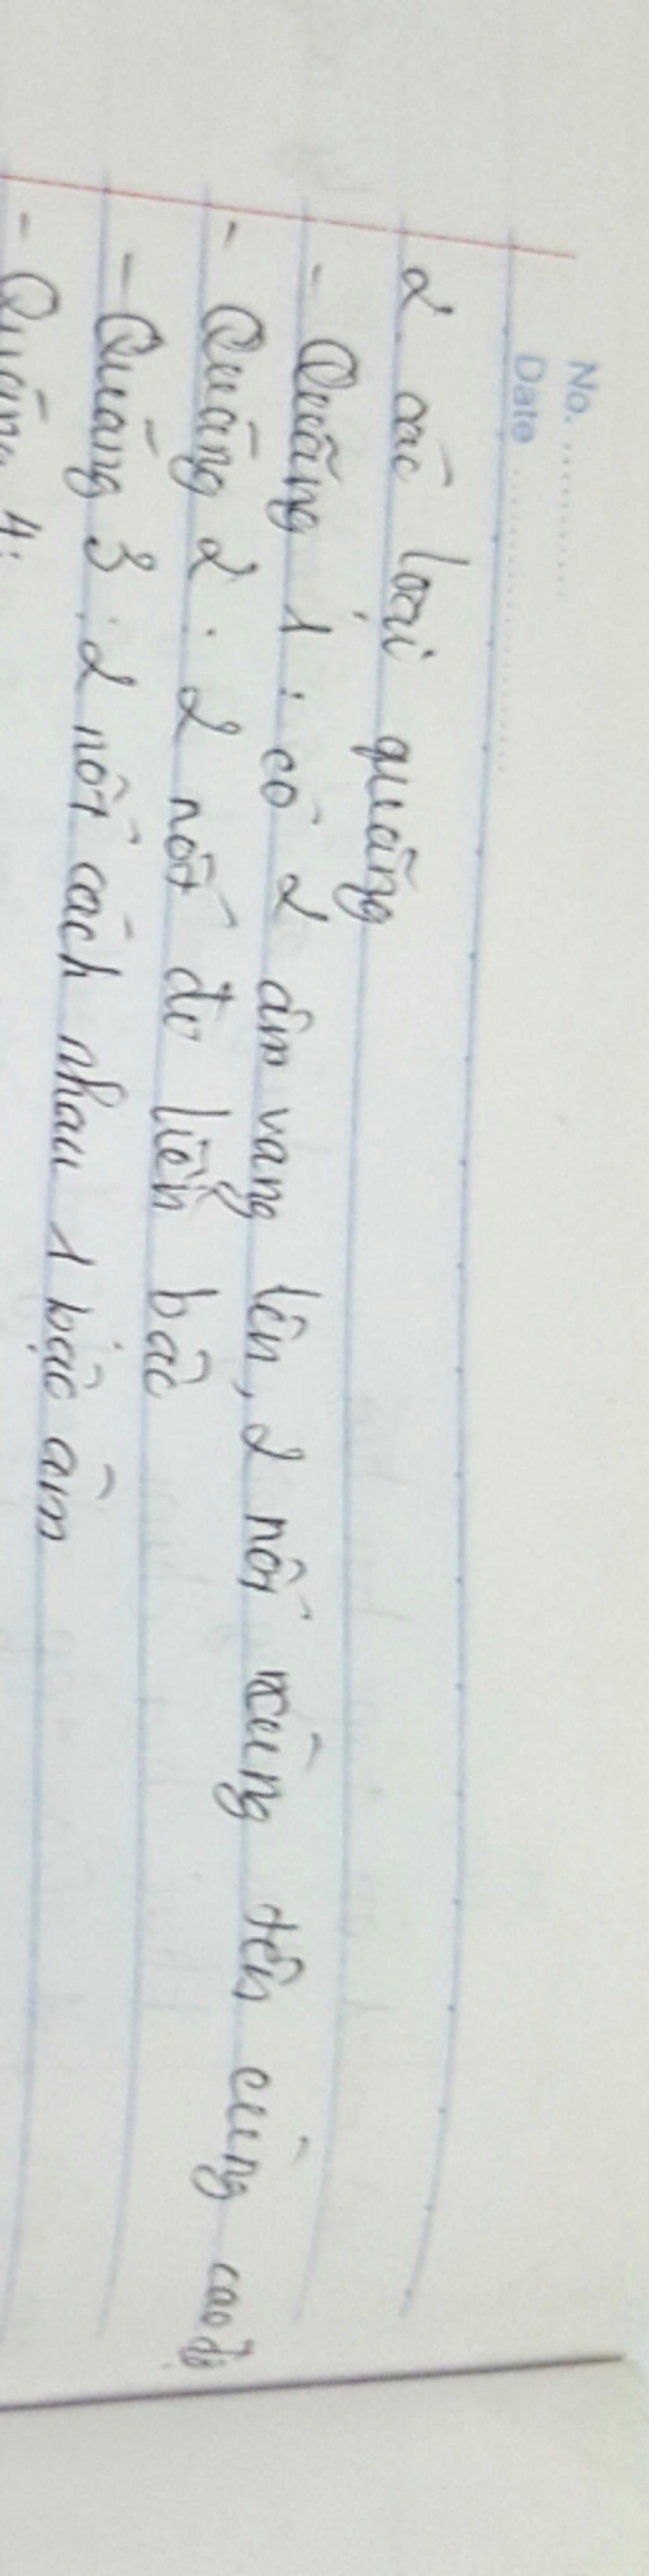 No. ............
Date ........................
2 các loại quãng
- Quãng 1 : có 2 âm vang lên, 2 nốt cùng tên cùng cao độ
- Quãng 2 : 2 nốt đi liền bậc
- Quãng 3 : 2 nốt cách nhau 1 bậc âm
- Quãng 4 :